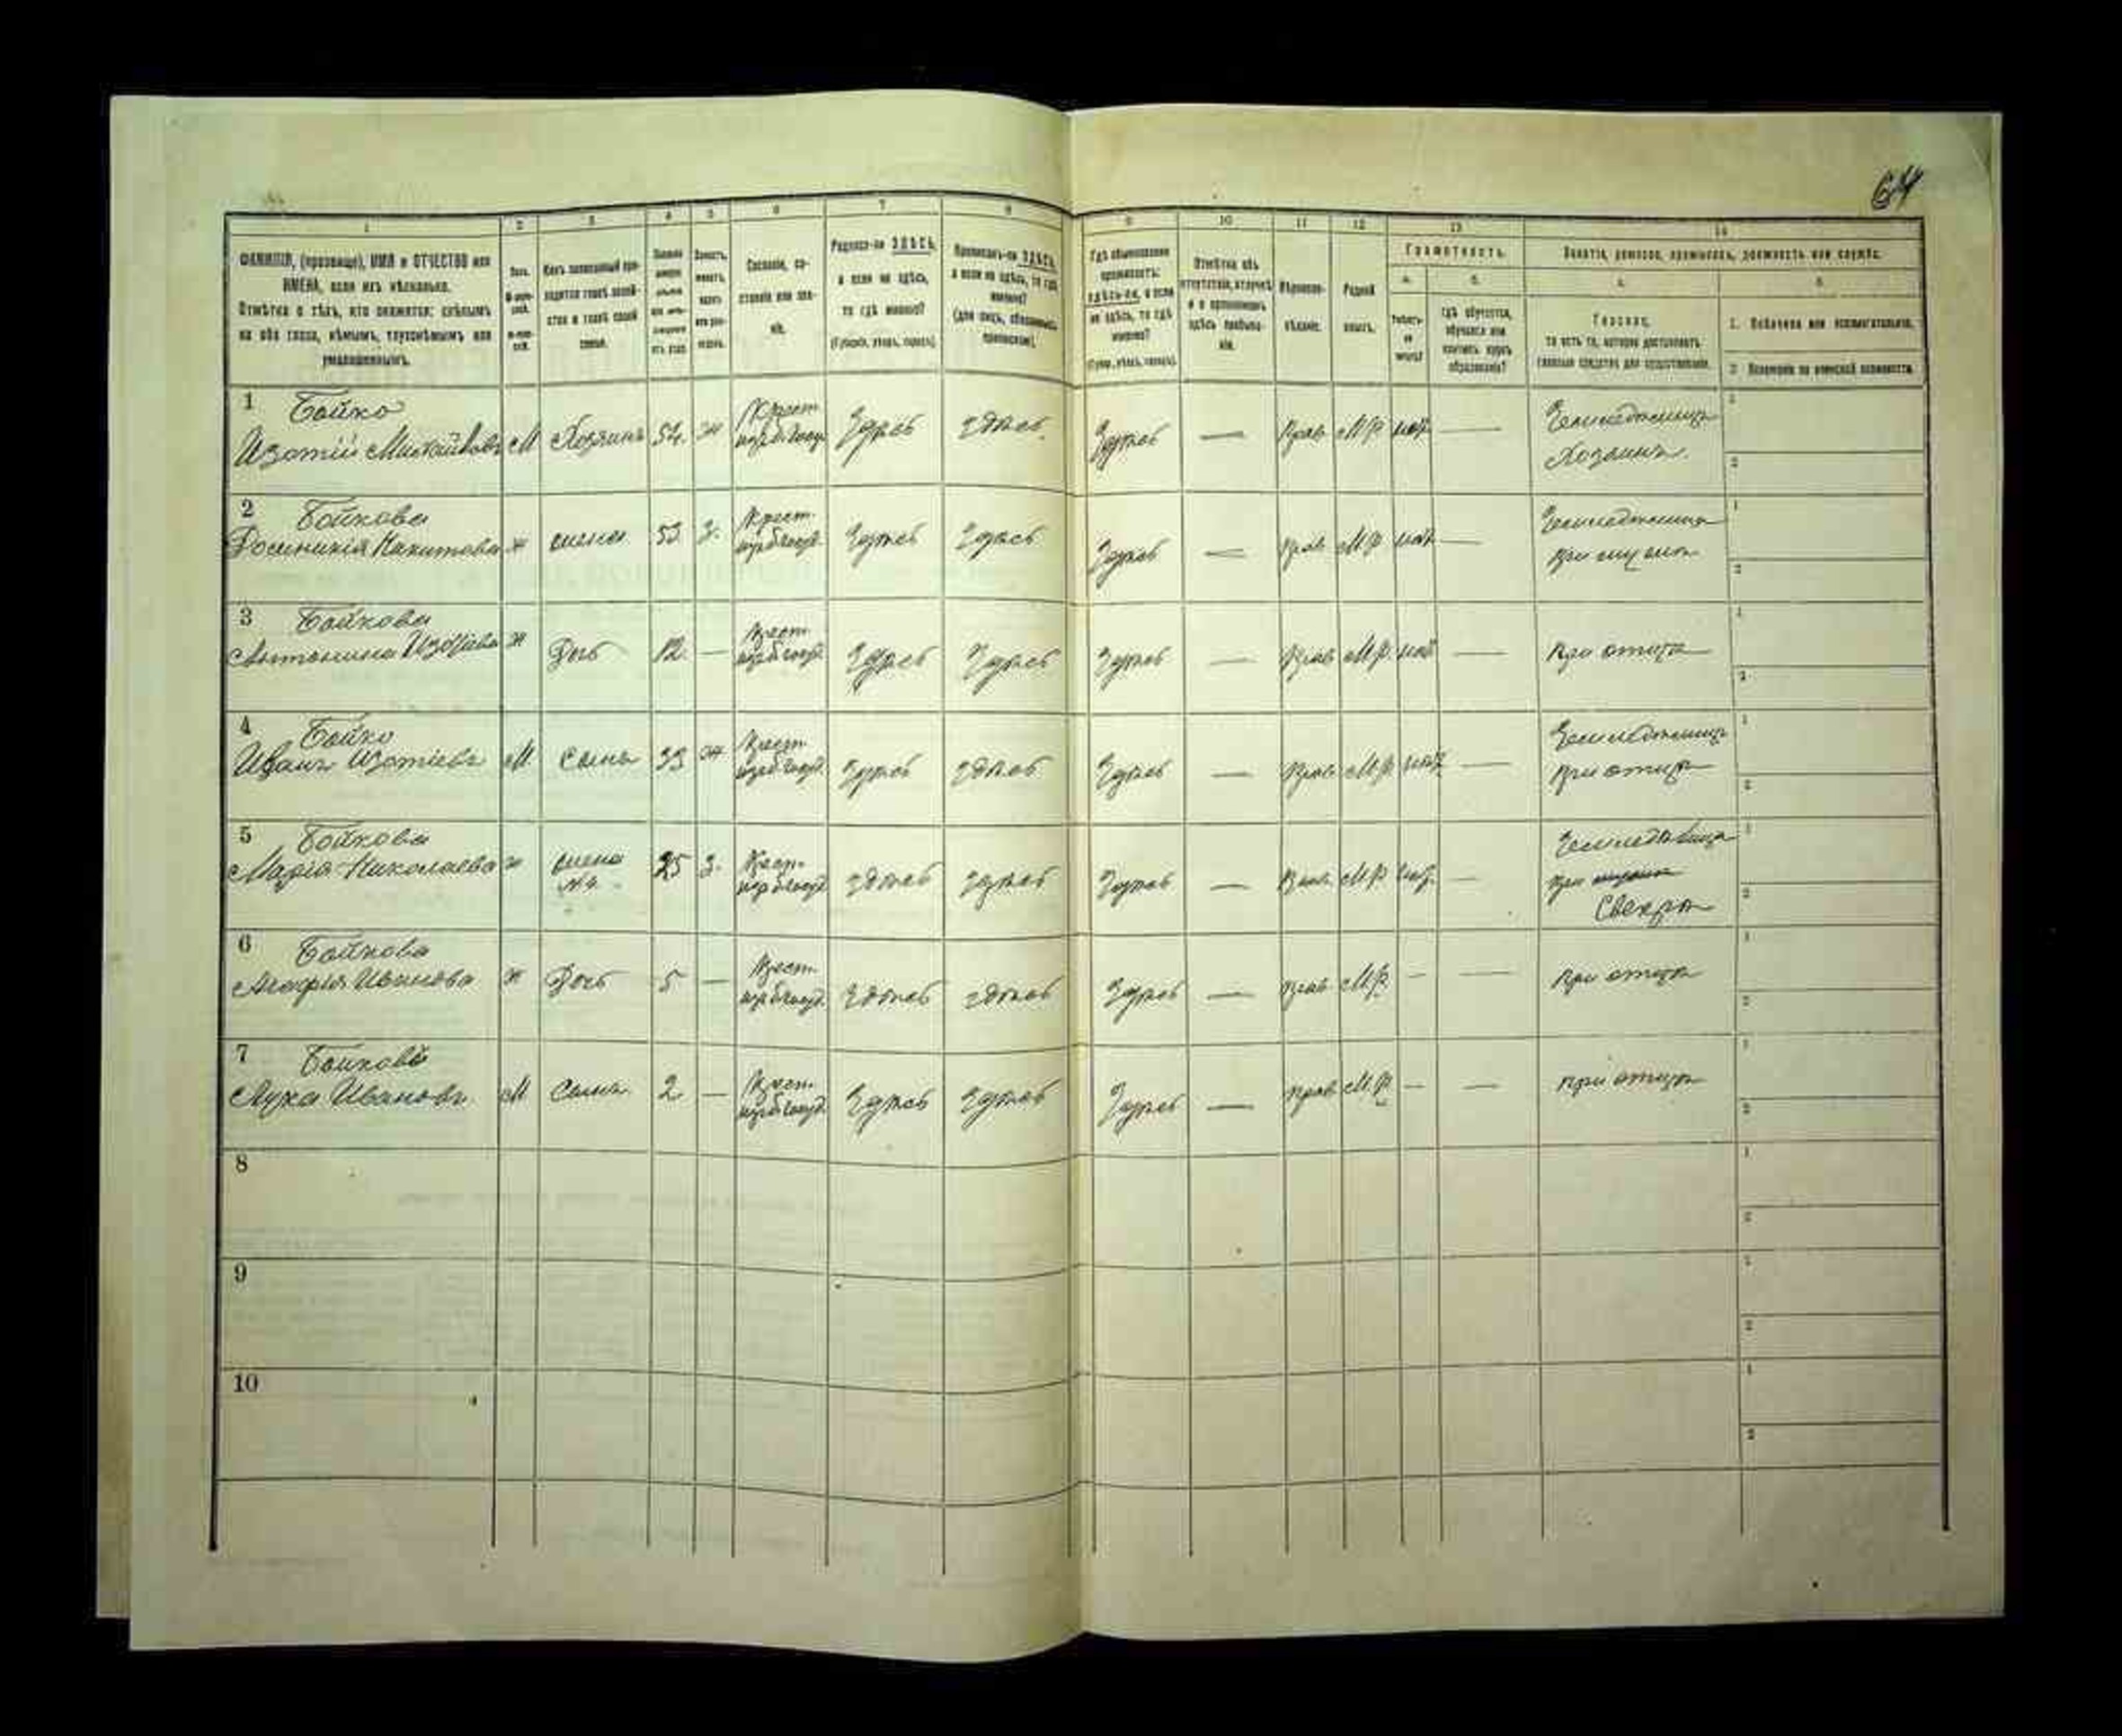 64
1 2 3 4 5 6 7 8 9 10 11 12 13 14
ФАМИЛІЯ, (прозвище), ИМЯ и ОТЧЕСТВО или
ИМЕНА, если ихъ нѣсколько.
Отмѣтка о тѣхъ, кто окажется: слѣпымъ
на оба глаза, нѣмымъ, глухонѣмымъ или
умалишеннымъ.
Полъ.
Какъ записанный при-
ходится главѣ хозяй-
ства и главѣ своей
семьи.
Сословіе, со-
стояніе или зва-
ніе.
Родился-ли ЗДѢСЬ,
а если не здѣсь,
то гдѣ именно?
(Губернія, уѣздъ, городъ).
Приписанъ-ли ЗДѢСЬ,
а если не здѣсь, то гдѣ
именно?
(для лицъ, обязанныхъ
припискою).
Гдѣ обыкновенно
проживаетъ:
здѣсь-ли, а если
не здѣсь, то гдѣ
именно?
(Губер., уѣздъ, городъ).
Отмѣтка объ
отсутствіи, отлучкѣ
и о временномъ
здѣсь пребыва-
ніи.
Вѣроиспо-
вѣданіе.
Родной
языкъ.
Грамотность.
а. б.
Умѣетъ-
ли
читать?
гдѣ обучается,
обучался или
кончилъ курсъ
образованія?
Занятіе, ремесло, промыселъ, должность или служба.
а. б.
Главное,
то есть то, которое доставляетъ
главныя средства для существованія.
1. Побочное или вспомогательное.
2. Положеніе по воинской повинности.
1 Бойко
Изотій Михайловъ М Хозяинъ 54 ж Крест. Здѣсь Здѣсь Здѣсь — Прав М.Р нѣтъ — Земледѣлецъ
Хозяинъ.
2 Бойкова
Никитова ж жена 53 з. Крест. Здѣсь Здѣсь Здѣсь — Прав М.Р нѣтъ — при мужѣ
3 Бойкова
Антонина ж Дочь 12 — Крест. Здѣсь Здѣсь Здѣсь — Прав М.Р нѣтъ — при отцѣ
4 Бойко
Иванъ Изотіевъ М Сынъ 33 ж Крест. Здѣсь Здѣсь Здѣсь — Прав М.Р нѣтъ — Земледѣлецъ
при отцѣ
5 Бойкова
Марія Николаева ж жена 25 з. Крест. Здѣсь Здѣсь Здѣсь — Прав М.Р нѣтъ —
при мужѣ
Свекрѣ
6 Бойкова
Агафія Иванова ж Дочь 5 — Крест. Здѣсь Здѣсь Здѣсь — Прав М.Р — — при отцѣ
7 Бойковъ
Лука Ивановъ М Сынъ 2 — Крест. Здѣсь Здѣсь Здѣсь — Прав М.Р — — при отцѣ
8
9
10